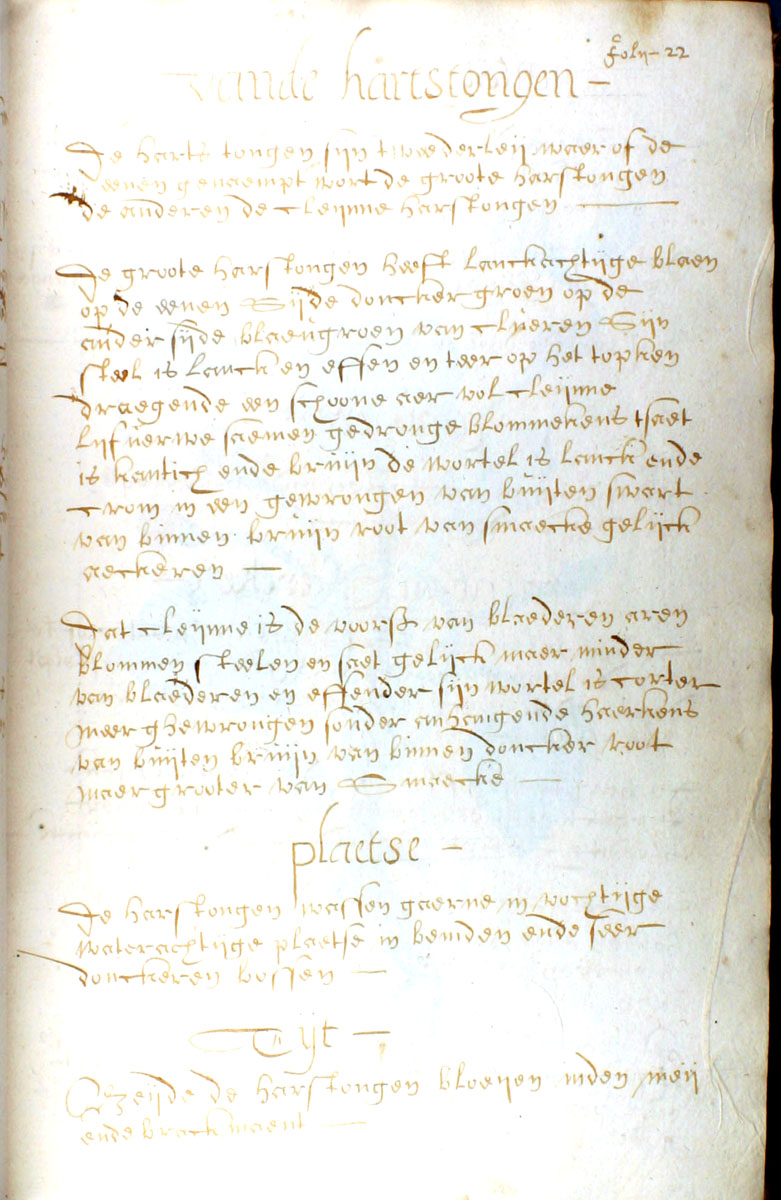 folij 22
vande hartstongen
De harts tongen sijn tweederleij waer of de
eenen genaempt wort de groote harstongen
de anderen de cleijnne harstongen
De groote harstongen heeft lanckachtijge blaen
op de eenen Sijde doncker groen op de
ander sijde blaeugroen van clueren Sijn
steel is lanck en effen en teer op het topken
draegende een schoone aer vol cleijnne
lijfuerwe saemen gedronge blommekens tsaet
is kantich ende bruijn de wortel is lanck ende
crom in een gewrongen van buijten swart
van binnen bruijn root van smaecke gelijck
aeckeren
Dat cleijnne is de voorss van blaederen aren
blommen steelen en saet gelijck maer minder
van blaederen en effender sijn wortel is corter
meer ghewrongen sonder anhangende haerkens
van buijten bruijn van binnen doncker root
maer grooter van Smaecke
plaetse
De harstongen wassen gaerne in vochtijge
waterachtijge plaetse in bemden ende seer
donckeren bossen
Tijt
Beijde de harstongen bloeijen inden meij
ende brackmaent